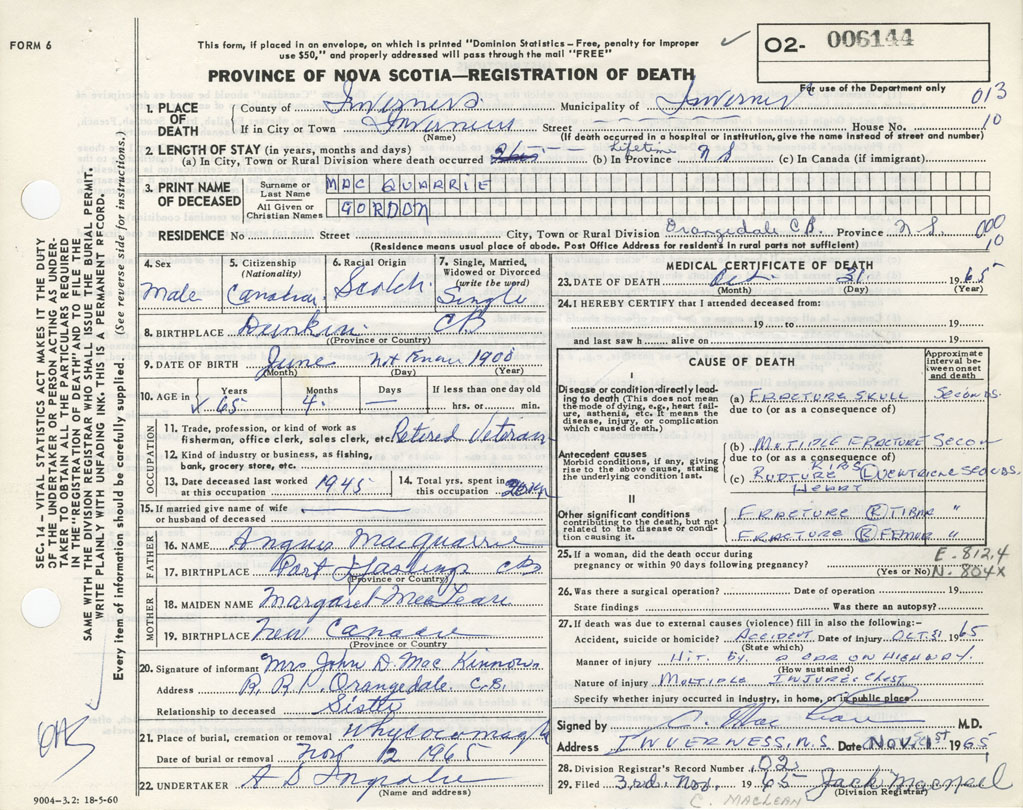 FORM 6
This form, if placed in an envelope, on which is printed "Dominion Statistics – Free, penalty for improper
use $50," and properly addressed will pass through the mail "FREE"
O2- 006144
PROVINCE OF NOVA SCOTIA—REGISTRATION OF DEATH
For use of the Department only
013
1. PLACE OF DEATH County of Inverness Municipality of Inverness
If in City or Town Inverness Street House No. 10
(Name) (If death occurred in a hospital or institution, give the name instead of street and number)
2. LENGTH OF STAY (in years, months and days)
(a) In City, Town or Rural Division where death occurred Lifetime (b) In Province N S (c) In Canada (if immigrant)
3. PRINT NAME OF DECEASED
Surname or Last Name MAC QUARRIE
All Given or Christian Names GORDON
RESIDENCE No Street City, Town or Rural Division Orangedale C.B. Province N S. 000
10
(Residence means usual place of abode. Post Office Address for residents in rural parts not sufficient)
4. Sex Male
5. Citizenship (Nationality) Canadian
6. Racial Origin Scotch
7. Single, Married, Widowed or Divorced (write the word) Single
8. BIRTHPLACE CB
(Province or Country)
9. DATE OF BIRTH June Not Known 1900
(Month) (Day) (Year)
10. AGE in Years 65 Months 4 Days — If less than one day old hrs. or min.
OCCUPATION
11. Trade, profession, or kind of work as
fisherman, office clerk, sales clerk, etc. Retired Veteran
12. Kind of industry or business, as fishing,
bank, grocery store, etc.
13. Date deceased last worked at this occupation 1945
14. Total yrs. spent in this occupation
15. If married give name of wife
or husband of deceased
FATHER
16. NAME Angus Macquarrie
17. BIRTHPLACE Port Hastings CB
(Province or Country)
MOTHER
18. MAIDEN NAME Margaret MacLean
19. BIRTHPLACE New Canada
(Province or Country
20. Signature of informant Mrs John D. Mac Kinnon
Address R. R. 1. Orangedale C.B.
Relationship to deceased Sister
21. Place of burial, cremation or removal Whycocomagh
Date of burial or removal Nov 2 1965
22. UNDERTAKER
(Name and address)
9004-3.2: 18-5-60
SEC. 14 – VITAL STATISTICS ACT MAKES IT THE DUTY
OF THE UNDERTAKER OR PERSON ACTING AS UNDER-
TAKER TO OBTAIN ALL THE PARTICULARS REQUIRED
IN THE "REGISTRATION OF DEATH" AND TO FILE THE
SAME WITH THE DIVISION REGISTRAR WHO SHALL ISSUE THE BURIAL PERMIT.
WRITE PLAINLY WITH UNFADING INK. THIS IS A PERMANENT RECORD.
Every item of information should be carefully supplied. (See reverse side for instructions.)
MEDICAL CERTIFICATE OF DEATH
23. DATE OF DEATH Oct 31 1965
(Month) (Day) (Year)
24. I HEREBY CERTIFY that I attended deceased from:
19 to 19
and last saw h alive on 19
CAUSE OF DEATH
Approximate interval between onset and death
I
Disease or condition directly lead-
ing to death (This does not mean
the mode of dying, e.g., heart fail-
ure, asthenia, etc. It means the
disease, injury, or complication
which caused death.)
(a) FRACTURE SKULL SECONDS.
due to (or as a consequence of)
Antecedent causes
Morbid conditions, if any, giving
rise to the above cause, stating
the underlying condition last.
(b) MULTIPLE FRACTURE RIBS
due to (or as a consequence of)
(c) RUPTURE VENTRICLE HEART SECONDS.
II
Other significant conditions
contributing to the death, but not
related to the disease or condition
causing it.
FRACTURE R TIBIA "
FRACTURE R FEMUR "
25. If a woman, did the death occur during
pregnancy or within 90 days following pregnancy?
(Yes or No)
E-812.4
N-804X
26. Was there a surgical operation? Date of operation 19
State findings Was there an autopsy?
27. If death was due to external causes (violence) fill in also the following:–
Accident, suicide or homicide? ACCIDENT Date of injury OCT. 31 1965
(State which)
Manner of injury HIT. BY. A CAR ON HIGHWAY.
(How sustained)
Nature of injury MULTIPLE INJURIES CHEST
Specify whether injury occurred in industry, in home, or in public place
Signed by C. MacLean M.D.
Address INVERNESS, N.S. Date Nov. 1st 1965
28. Division Registrar's Record Number 02
29. Filed 3rd. Nov. 1965 Jack Macneil
(Division Registrar)
C. MACLEAN